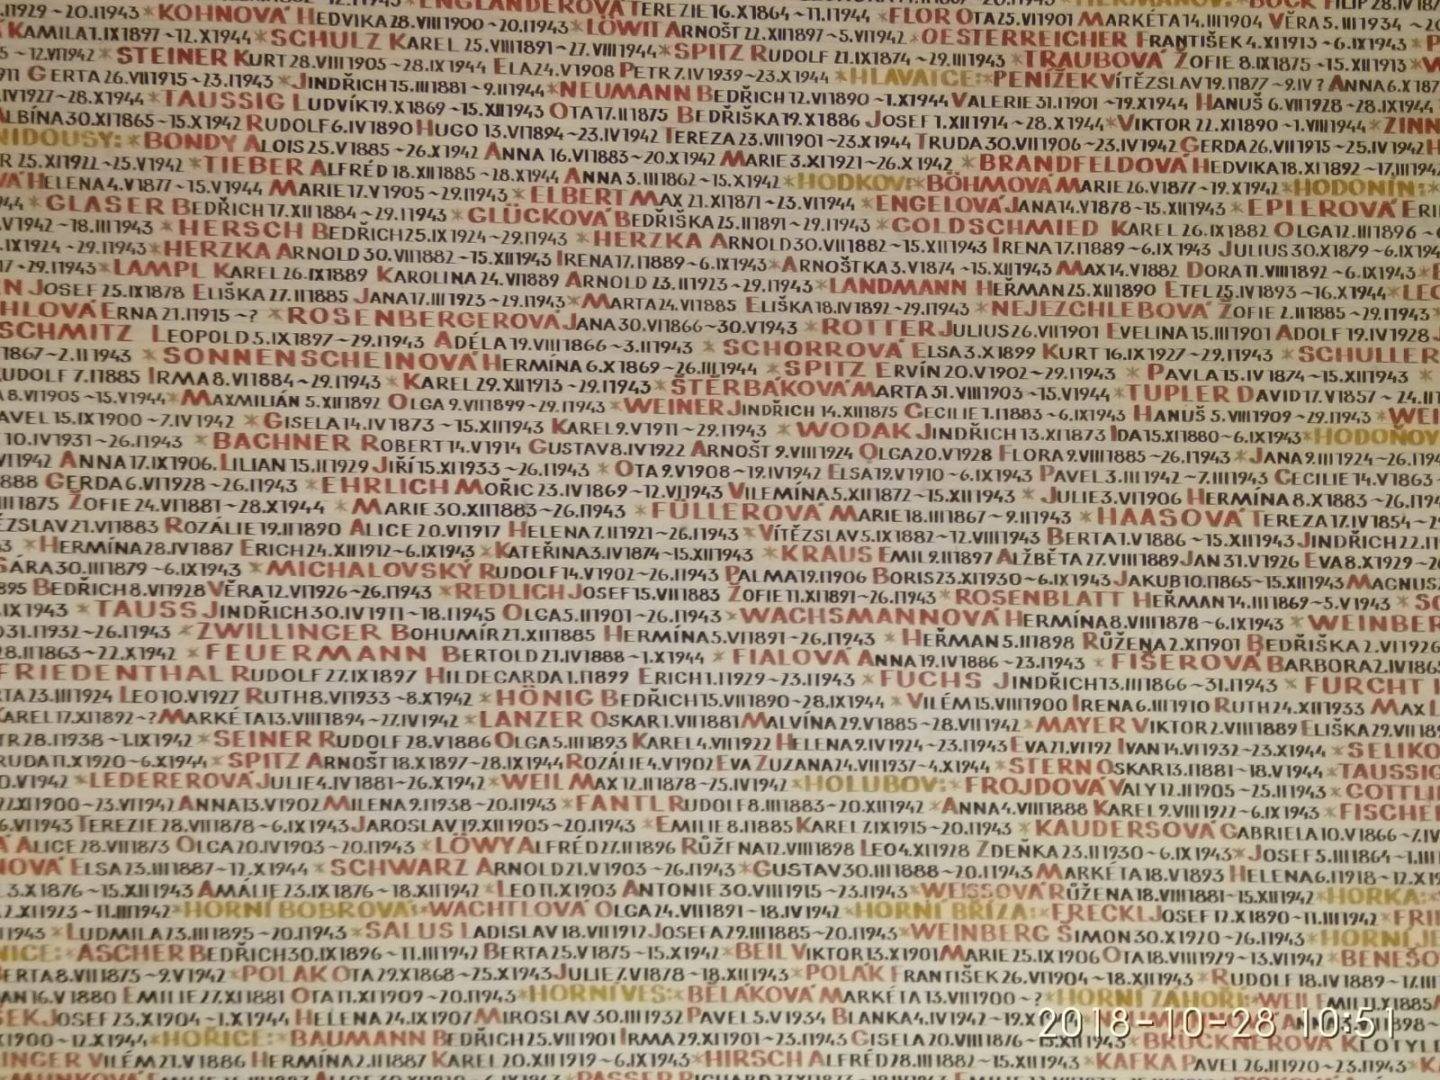 KOHNOVÁ HEDVIKA 28.VIII1900~20.I1943 * LÖWIT ARNOŠT 22.XII1897~5.VI1942 * FLOR OTA 25.VI1901 MARKÉTA 14.III1904 VĚRA 5.III1934
KAMILA 1.IX1897~12.X1944 * SCHULZ KAREL 25.VIII1891~27.VIII1944 * SPITZ RUDOLF 21.IX1874~29.III1943 * TRAUBOVÁ ŽOFIE 8.IX1875~15.XII1913
* STEINER KURT 28.VIII1905~28.IX1944 ELA 24.V1908 PETR 7.IV1939~23.X1944 * HLAVATCE: * PENÍŽEK VÍTĚZSLAV 19.I1877~9.IV? ANNA
GERTA 26.VII1915~23.I1943 * JINDŘICH 15.III1881~9.II1944 * NEUMANN BEDŘICH 12.VI1890~1.X1944 VALERIE 31.I1901~19.X1944 HANUŠ 6.VII1928~28.IX1944
* TAUSSIG LUDVÍK 19.X1869~15.XII1943 OTA 17.II1875 BEDŘIŠKA 19.X1886 JOSEF 1.XII1914~28.X1944 * VIKTOR 22.XI1890~1.VIII1944
ALBÍNA 30.XI1865~15.X1942 RUDOLF 6.IV1890 HUGO 13.VI1894~23.IV1942 TEREZA 23.VII1901~23.X1944 TRUDA 30.VII1906~23.IV1942 GERDA 26.VII1915~25.IV1942
* BONDY ALOIS 25.V1885~26.X1942 ANNA 16.VI1883~20.X1942 MARIE 3.XI1921~26.X1942 * BRANDFELDOVÁ HEDVIKA 18.XI1892
* TIEBER ALFRÉD 18.XII1885~28.X1944 ANNA 3.III1862~15.X1942 * HODKOV: * BÖHMOVÁ MARIE 26.V1877~19.X1942 * HODONÍN: *
HELENA 4.V1877~15.V1944 MARIE 17.V1905~29.I1943 * ELBERT MAX 21.XI1871~23.VI1944 * ENGELOVÁ JANA 14.V1878~15.XII1943 * EPLEROVÁ
* GLASER BEDŘICH 17.XII1884~29.I1943 * GLÜCKOVÁ BEDŘIŠKA 25.II1891~29.I1943 * GOLDSCHMIED KAREL 26.IX1882 OLGA 12.III1896
* HERSCH BEDŘICH 25.IX1924~29.I1943 * HERZKA ARNOLD 30.VII1882~15.XII1943 IRENA 17.I1889~6.IX1943 JULIUS 30.X1879
* HERZKA ARNOLD 30.VII1882~15.XII1943 IRENA 17.I1889~6.IX1943 * ARNOŠTKA 3.V1874~15.XII1943 MAX 14.V1882 DORA 11.VIII1892~6.IX1943
* LAMPL KAREL 26.IX1889 KAROLINA 24.VI1889 ARNOLD 23.II1923~29.I1943 * LANDMANN HEŘMAN 25.XII1890 ETEL 25.IV1893~16.X1944
JOSEF 25.IX1878 ELIŠKA 27.II1885 JANA 17.III1923~29.I1943 * MARTA 24.VI1885 ELIŠKA 18.IV1892~29.I1943 * NEJEZCHLEBOVÁ ŽOFIE 2.II1885~29.I1943
ERNA 21.I1915~? * ROSENBERGEROVÁ JANA 30.VI1866~30.V1943 * ROTTER JULIUS 26.VII1901 EVELINA 15.III1901 ADOLF 19.IV1928
SCHMITZ LEOPOLD 5.IX1897~29.I1943 ADÉLA 19.VIII1866~3.II1943 * SCHORROVÁ ELSA 3.X1899 KURT 16.IX1927~29.I1943 * SCHULLER
* SONNENSCHEINOVÁ HERMÍNA 6.X1869~26.III1944 * SPITZ ERVÍN 20.V1902~29.I1943 * PAVLA 15.IV1874~15.XII1943 *
RUDOLF 7.I1885 IRMA 8.VI1884~29.I1943 * KAREL 29.XII1913~29.I1943 * ŠTERBÁKOVÁ MARTA 31.VIII1903~15.V1944 * TUPLER DAVID 17.V1857
* MAXMILIÁN 5.XII1892 OLGA 9.VII1899~29.I1943 * WEINER JINDŘICH 14.XII1875 CECILIE 1.I1883~6.IX1943 HANUŠ 5.VIII1909~29.I1943 *
15.IX1900~7.IV1942 * GISELA 14.IV1873~15.XII1943 KAREL 9.V1911~29.I1943 * WODAK JINDŘICH 13.XI1873 IDA 15.XI1880~6.IX1943 *
10.IV1931~26.I1943 * BACHNER ROBERT 14.V1914 GUSTAV 8.IV1922 ARNOŠT 9.VIII1924 OLGA 20.V1928 FLORA 9.VIII1885~26.I1943 * JANA 9.III1924
ANNA 17.IX1906 LILIAN 15.II1929 JIŘÍ 15.XI1933~26.I1943 * OTA 9.V1908~19.IV1942 ELSA 19.V1910~6.IX1943 PAVEL 3.III1942~7.III1943 CECILIE 14.V1863
GERDA 6.VII1928~26.I1943 * EHRLICH MOŘIC 23.IV1869~12.VI1943 VILEMÍNA 5.XII1872~15.XII1943 * JULIE 3.VI1906 HERMÍNA 8.X1883
ŽOFIE 24.VII1881~28.X1944 * MARIE 30.XII1883~26.I1943 * FÜLLEROVÁ MARIE 18.III1867~9.II1943 * HAASOVÁ TEREZA 17.IV1854
21.VI1883 ROZÁLIE 19.II1890 ALICE 20.VI1917 HELENA 7.II1921~26.I1943 * VÍTĚZSLAV 5.IX1882~12.VIII1943 BERTA 1.V1886~15.XII1943 JINDŘICH
* HERMÍNA 28.IV1887 ERICH 24.XII1912~6.IX1943 * KATEŘINA 3.IV1874~15.XII1943 * KRAUS EMIL 9.II1897 ALŽBĚTA 27.VIII1889 JAN 31.V1926 EVA 8.X1929
SÁRA 30.III1879~6.IX1943 * MICHALOVSKÝ RUDOLF 14.V1902~26.I1943 PALMA 19.I1906 BORIS 23.XI1930~6.IX1943 JAKUB 10.I1865~15.XII1943 MAGNUS
BEDŘICH 8.VI1928 VĚRA 12.VI1926~26.I1943 * REDLICH JOSEF 15.VII1883 ŽOFIE 11.XI1891~26.I1943 * ROSENBLATT HEŘMAN 14.III1869~5.V1943 *
* TAUSS JINDŘICH 30.IV1911~18.I1945 OLGA 5.II1901~26.I1943 * WACHSMANNOVÁ HERMÍNA 8.VIII1878~6.IX1943 *
31.I1932~26.I1943 * ZWILLINGER BOHUMÍR 21.XII1885 HERMÍNA 5.VI1891~26.I1943 * HEŘMAN 5.II1898 RŮŽENA 2.XI1901 BEDŘIŠKA 2.VI1926
28.II1863~22.X1942 * FEUERMANN BERTOLD 21.IV1888~1.X1944 * FIALOVÁ ANNA 19.IV1886~23.I1943 * FIŠEROVÁ BARBORA
FRIEDENTHAL RUDOLF 27.IX1897 HILDEGARDA 1.I1899 ERICH 1.I1929~23.I1943 * FUCHS JINDŘICH 13.III1866~31.I1943 * FURCHT
23.III1924 LEO 10.V1927 RUTH 8.VI1933~8.X1942 * HÖNIG BEDŘICH 15.VII1890~28.IX1944 * VILÉM 15.VIII1900 IRENA 6.III1910 RUTH 24.XII1933 MAX
KAREL 17.XI1892~? MARKÉTA 13.VIII1894~27.IV1942 * LANZER OSKAR 1.VII1881 MALVÍNA 29.V1885~28.VII1942 * MAYER VIKTOR 2.VIII1889 ELIŠKA
28.I1938~1.IX1942 * SEINER RUDOLF 28.V1886 OLGA 5.III1893 KAREL 4.VII1922 HELENA 9.IV1924~23.I1943 EVA 21.VI192 IVAN 14.VI1932~23.X1944 *
11.X1920~6.X1944 * SPITZ ARNOŠT 18.X1897~28.IX1944 ROZÁLIE 4.V1902 EVA ZUZANA 24.VII1937~4.X1944 * STERN OSKAR 13.II1881~18.V1944 * TAUSSIG
* LEDEREROVÁ JULIE 4.IV1881~26.X1942 * WEIL MAX 12.II1878~25.IV1942 * HOLUBOV: * FROJDOVÁ VALY 12.II1905~25.II1943 *
ANNA 13.V1902 MILENA 9.II1938~20.I1943 * FANTL RUDOLF 8.III1883~20.XII1942 * ANNA 4.VIII1888 KAREL 9.VIII1922~6.IX1943 *
TEREZIE 28.VIII1878~6.IX1943 JAROSLAV 19.XII1905~20.I1943 * EMILIE 8.II1885 KAREL 7.IX1915~20.I1943 * KAUDERSOVÁ GABRIELA 10.V1866
ALICE 28.VII1873 OLGA 20.IV1903~20.I1943 * LÖWY ALFRÉD 27.II1896 RŮŽENA 12.VIII1898 LEO 4.XI1928 ZDEŇKA 23.II1930~6.IX1943 * JOSEF 5.III1864
ELSA 23.III1887~17.X1944 * SCHWARZ ARNOLD 21.V1903~26.I1943 * GUSTAV 30.III1888~20.I1943 MARKÉTA 18.V1893 HELENA 6.I1918
3.X1876~15.XII1943 AMÁLIE 23.IX1876~18.XII1942 * LEO 11.X1903 ANTONIE 30.VIII1915~23.I1943 * WEISSOVÁ RŮŽENA 18.VIII1881~15.XII1942 * HORKA:
* HORNÍ BOBROVÁ: * WACHTLOVÁ OLGA 24.VII1891~18.IV1942 * HORNÍ BŘÍZA: * FRECKL JOSEF 12.X1890~11.III1942 *
* LUDMILA 23.III1895~20.I1943 * SALUS LADISLAV 18.VII1912 JOSEFA 29.III1885~20.I1943 * WEINBERG ŠIMON 30.X1920~26.I1943 *
* ASCHER BEDŘICH 30.IX1896~11.III1942 BERTA 25.V1875~15.X1942 * BEIL VIKTOR 13.X1901 MARIE 25.IX1906 OTA 18.VIII1929~13.VI1942 *
8.VIII1875~9.V1942 * POLÁK OTA 29.X1868~25.X1943 JULIE 7.V1878~18.XII1943 * POLÁK FRANTIŠEK 26.VI1904~18.XII1943 * RUDOLF 18.IV1889
16.V1880 EMILIE 27.XI1881 OTA 11.XI1909~20.I1943 * HORNÍ VES: * BĚLÁKOVÁ MARKÉTA 13.VII1900~? * HORNÍ ZÁHOŘÍ: * WEIL
JOSEF 23.X1904~1.X1944 HELENA 24.IX1907 MIROSLAV 30.III1932 PAVEL 5.V1934 BLANKA 4.IV1942
* HOŘICE: * BAUMANN BEDŘICH 25.VII1901 IRMA 29.XI1901~23.I1943 GISELA 20.VIII1876 * BRUCKNEROVÁ
VILÉM 21.V1886 HERMÍNA 2.II1887 KAREL 20.XII1919~6.IX1943 * HIRSCH ALFRÉD 28.III1882~15.XII1943 * KAFKA PAVEL 26.II1920
2018-10-28 10:51